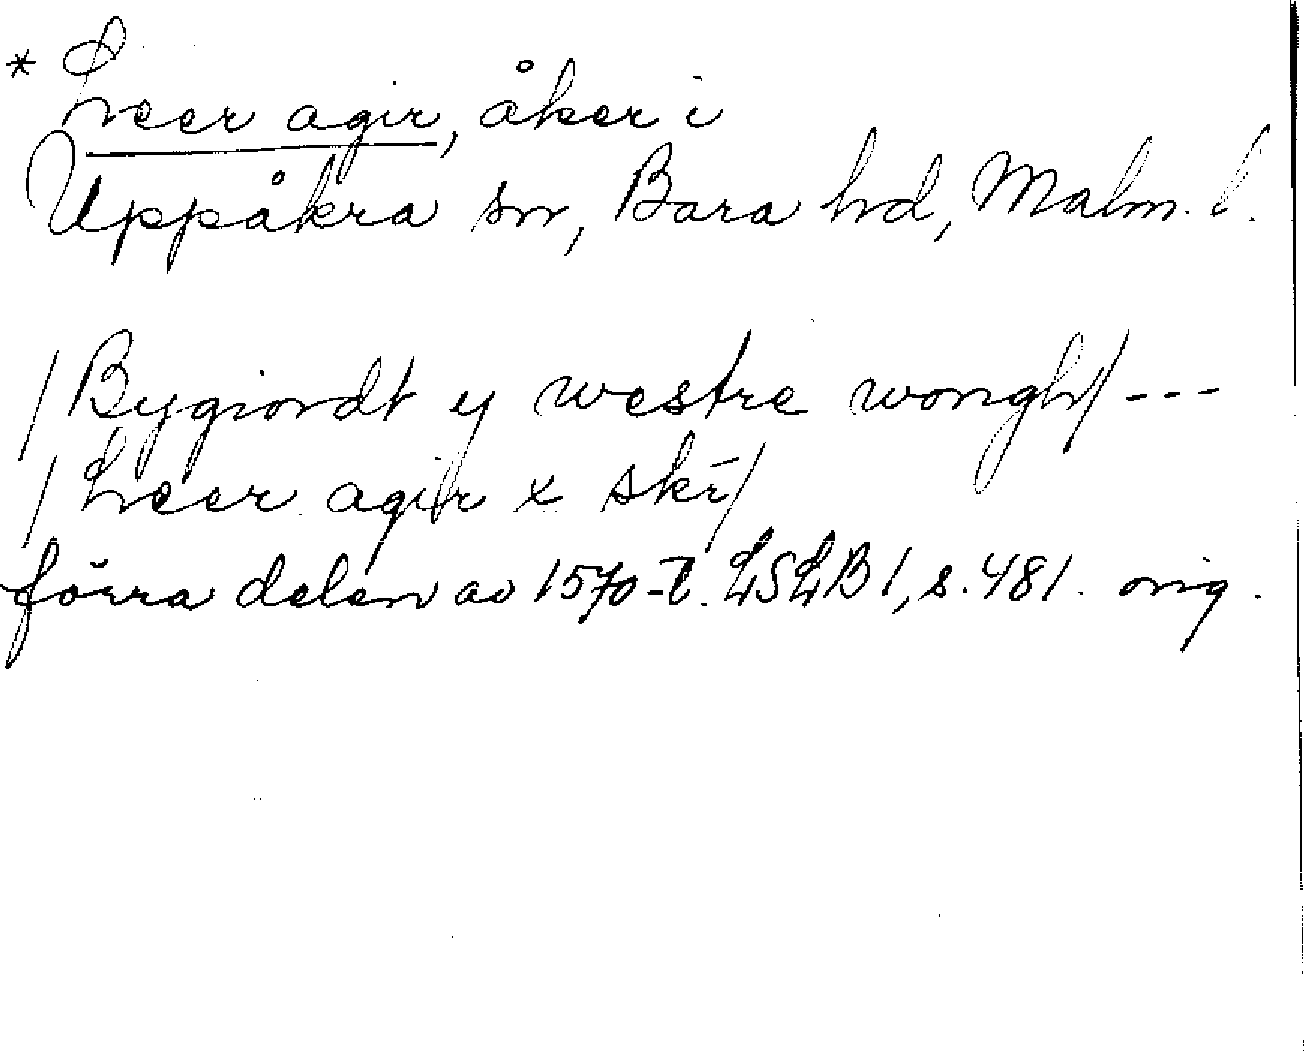 * Leer agir, åker i
Uppåkra sn, Bara hd, Malm. l.
/Bygiordt y westre wongh/ ---
/Leer agir x skr̄/
förra delen av 1570-t. LSLB 1, s. 481. orig.